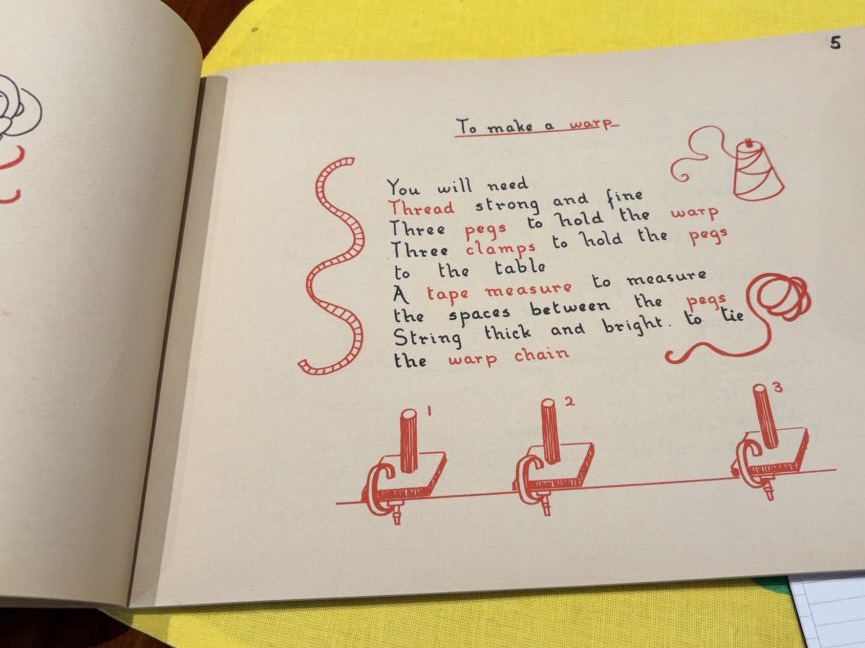 5
To make a warp
You will need
Thread strong and fine
Three pegs to hold the warp
Three clamps to hold the pegs
to the table
A tape measure to measure
the spaces between the pegs
String thick and bright. to tie
the warp chain
1 2 3